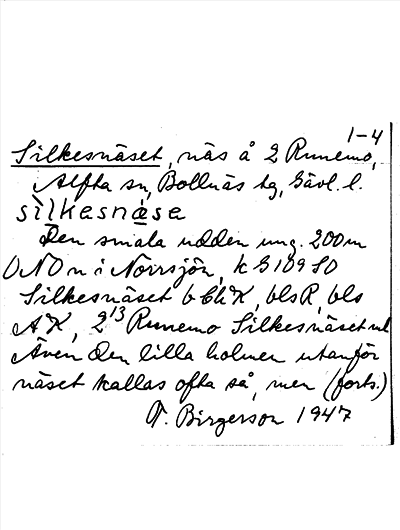 1-4
Silkesnäset, näs å 2 Runemo,
Alfta sn, Bollnäs tg, Gävl. l.
sìlkesnæ̀se
Den smala udden ung. 200 m
ONO n i Norrsjön, k G 109 SO
Silkesnäset b Ch K, bls R, bls
A K, 2¹³ Runemo Silkesnäset ul
Även den lilla holmen utanför
näset kallas ofta så, men (forts.)
T. Birgerson 1947